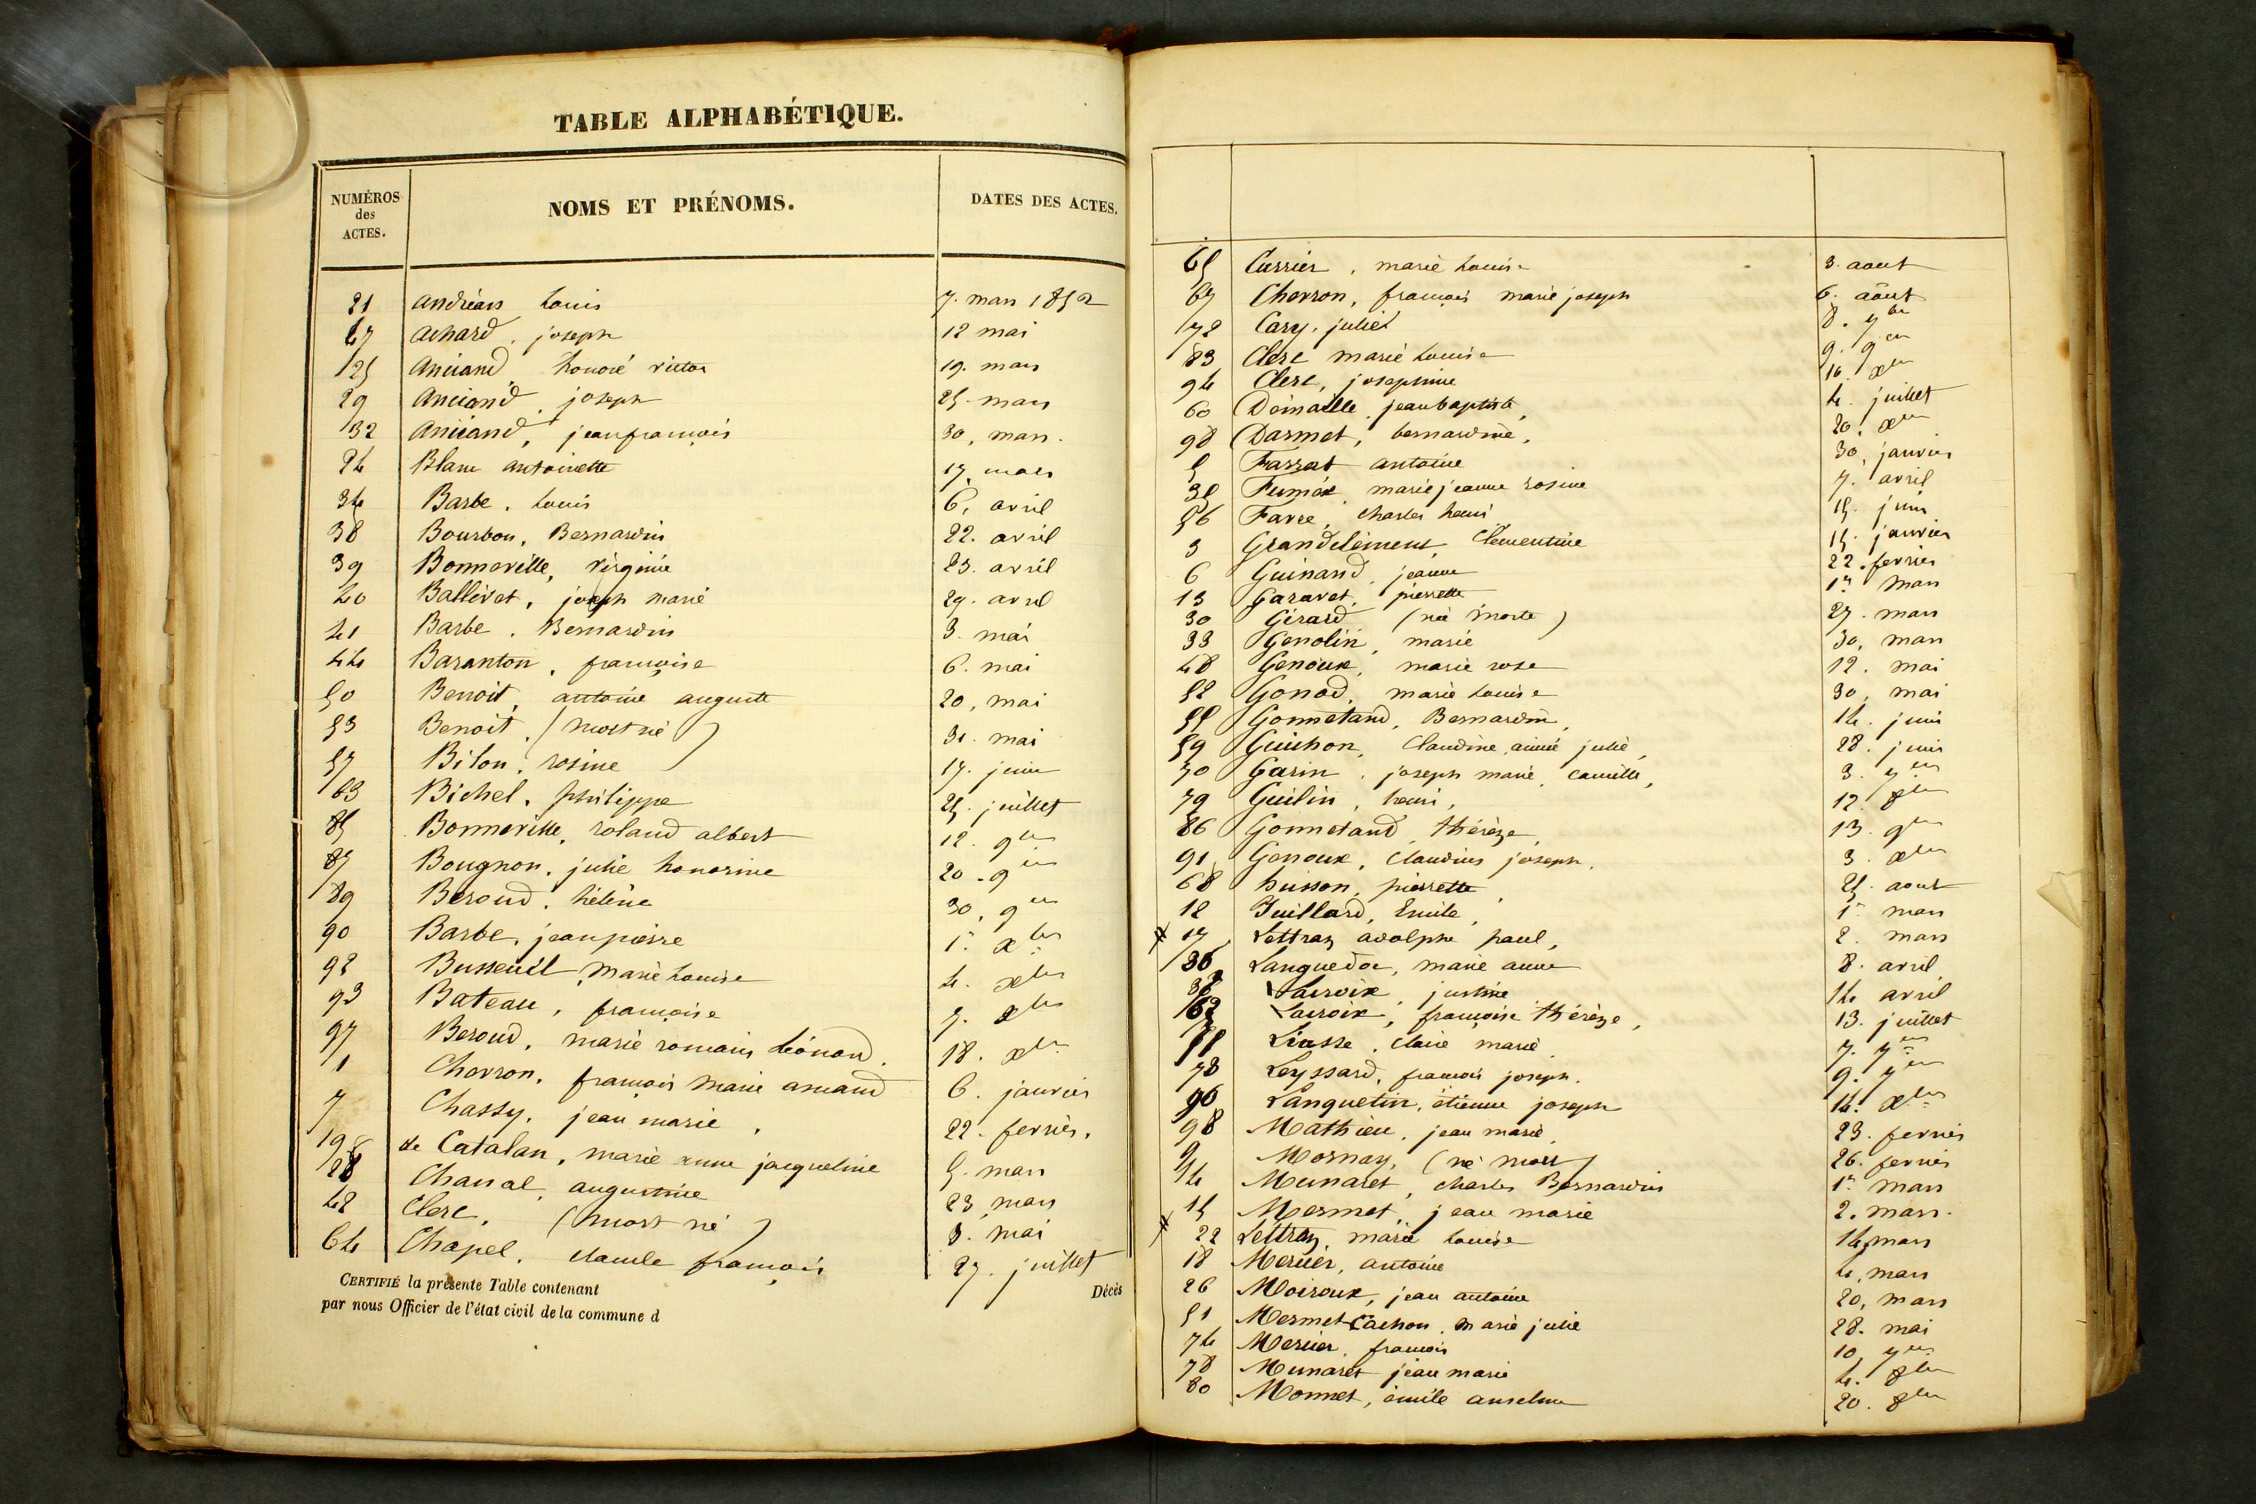 TABLE ALPHABÉTIQUE.
NUMÉROS des ACTES. NOMS ET PRÉNOMS. DATES DES ACTES.
21 andréan Louis 7. mars 1852
47 achard, joseph 12 mai
25 anciand honoré victor 19. mars
29 anciand, joseph 25. mars
32 anciand, jean françois 30, mars.
24 Blanc antoinette 17, mars
34 Barbe, Louis 6, avril
38 Bourbon, Bernardin 22. avril
39 Bonneville, virginie 23. avril
40 Ballivet, joseph marie 29. avril
41 Barbe, Bernardin 3. mai
44 Baranton, françoise 6. mai
50 Benoit, antoine auguste 20, mai
53 Benoit, (mort né) 31. mai
57 Bilon, rosine 17. juin
63 Bichel, philippe 25. juillet
85 Bonneville, roland albert 12. 9bre
87 Bougnon, julie honorine 20. 9bre
89 Beroud, hélène 30, 9bre
90 Barbe, jean pierre 1er xbre
92 Busseuil marie Louise 4. xbre
93 Bateau, françoise 7. xbre
97 Beroud, marie romain Léonard 18. xbre
1 Chorron, françois marie amand 6. janvier
7 Chassy, jean marie, 22. fevrier.
19 de Catalan, marie anne jacqueline 5. mars
28 Chanal, augustine 23 mars
42 Clerc, (mort né) 3. mai
64 Chapel, claude françois 27. juillet
CERTIFIÉ la présente Table contenant Décès
par nous Officier de l'état civil de la commune d
65 Currier, marie Louise 3. aout
67 Chorron, françois marie joseph 6. aout
72 Cary, juliet 8. 7bre
83 Clerc marie Louise 9. 9bre
94 Clerc, josephine 16. xbre
60 Domaille, jean baptiste, 4. juillet
98 Darmet, bernardine, 20. xbre
5 Farrat antoine 30, janvier
35 Fumex, marie jeanne rosine 7. avril
56 Favre, charles henri 15. juin
3 Grandclément, Clementine 15. janvier
6 Guinand, jeanne 22. fevrier
13 Garavet, pierrette 1er mars
30 Girard (né morte) 27. mars
33 Genolin, marie 30, mars
48 Genoux, marie rose 12. mai
52 Gonod, marie Louise 30, mai
55 Gonnetand, Bernardin, 14. juin
59 Guichon, Claudine aimée julie, 28. juin
70 Garin, joseph marie, camille, 3. 7bre
79 Guilin, henri, 12. 8bre
86 Gonnetand, thérèze 13. 9bre
91 Genoux, Claudius joseph. 3. xbre
68 husson, pierrette, 25. aout
12 Juillard, Emile, 1er mars
17 Lettraz adolphe paul, 2. mars
36 Languedoc, marie anne 8. avril
37 Lacroix, justine 14 avril
62 Lacroix, françoise thérèze, 13. juillet
Liasse, claire marie 7. 7bre
73 Leyssard, françois joseph. 9. 7bre
96 Languetin, étienne joseph 14. xbre
98 Mathieu, jean marie, 23. fevrier
9 Mornay, (né mort) 26. fevrier
14 Munaret, charles Bernardin 1er mars
15 Mermet, jean marie 2. mars.
22 Lettraz, marie Louise 14, mars
18 Mercier, antoine 4, mars
26 Moiroux, jean antoine 20, mars
51 Mermet Cachon, marie julie 28. mai
74 Mercier, françois 10, 7bre
78 Munaret jean marie 4. 8bre
80 Monnet, émile anselme 20. 8bre